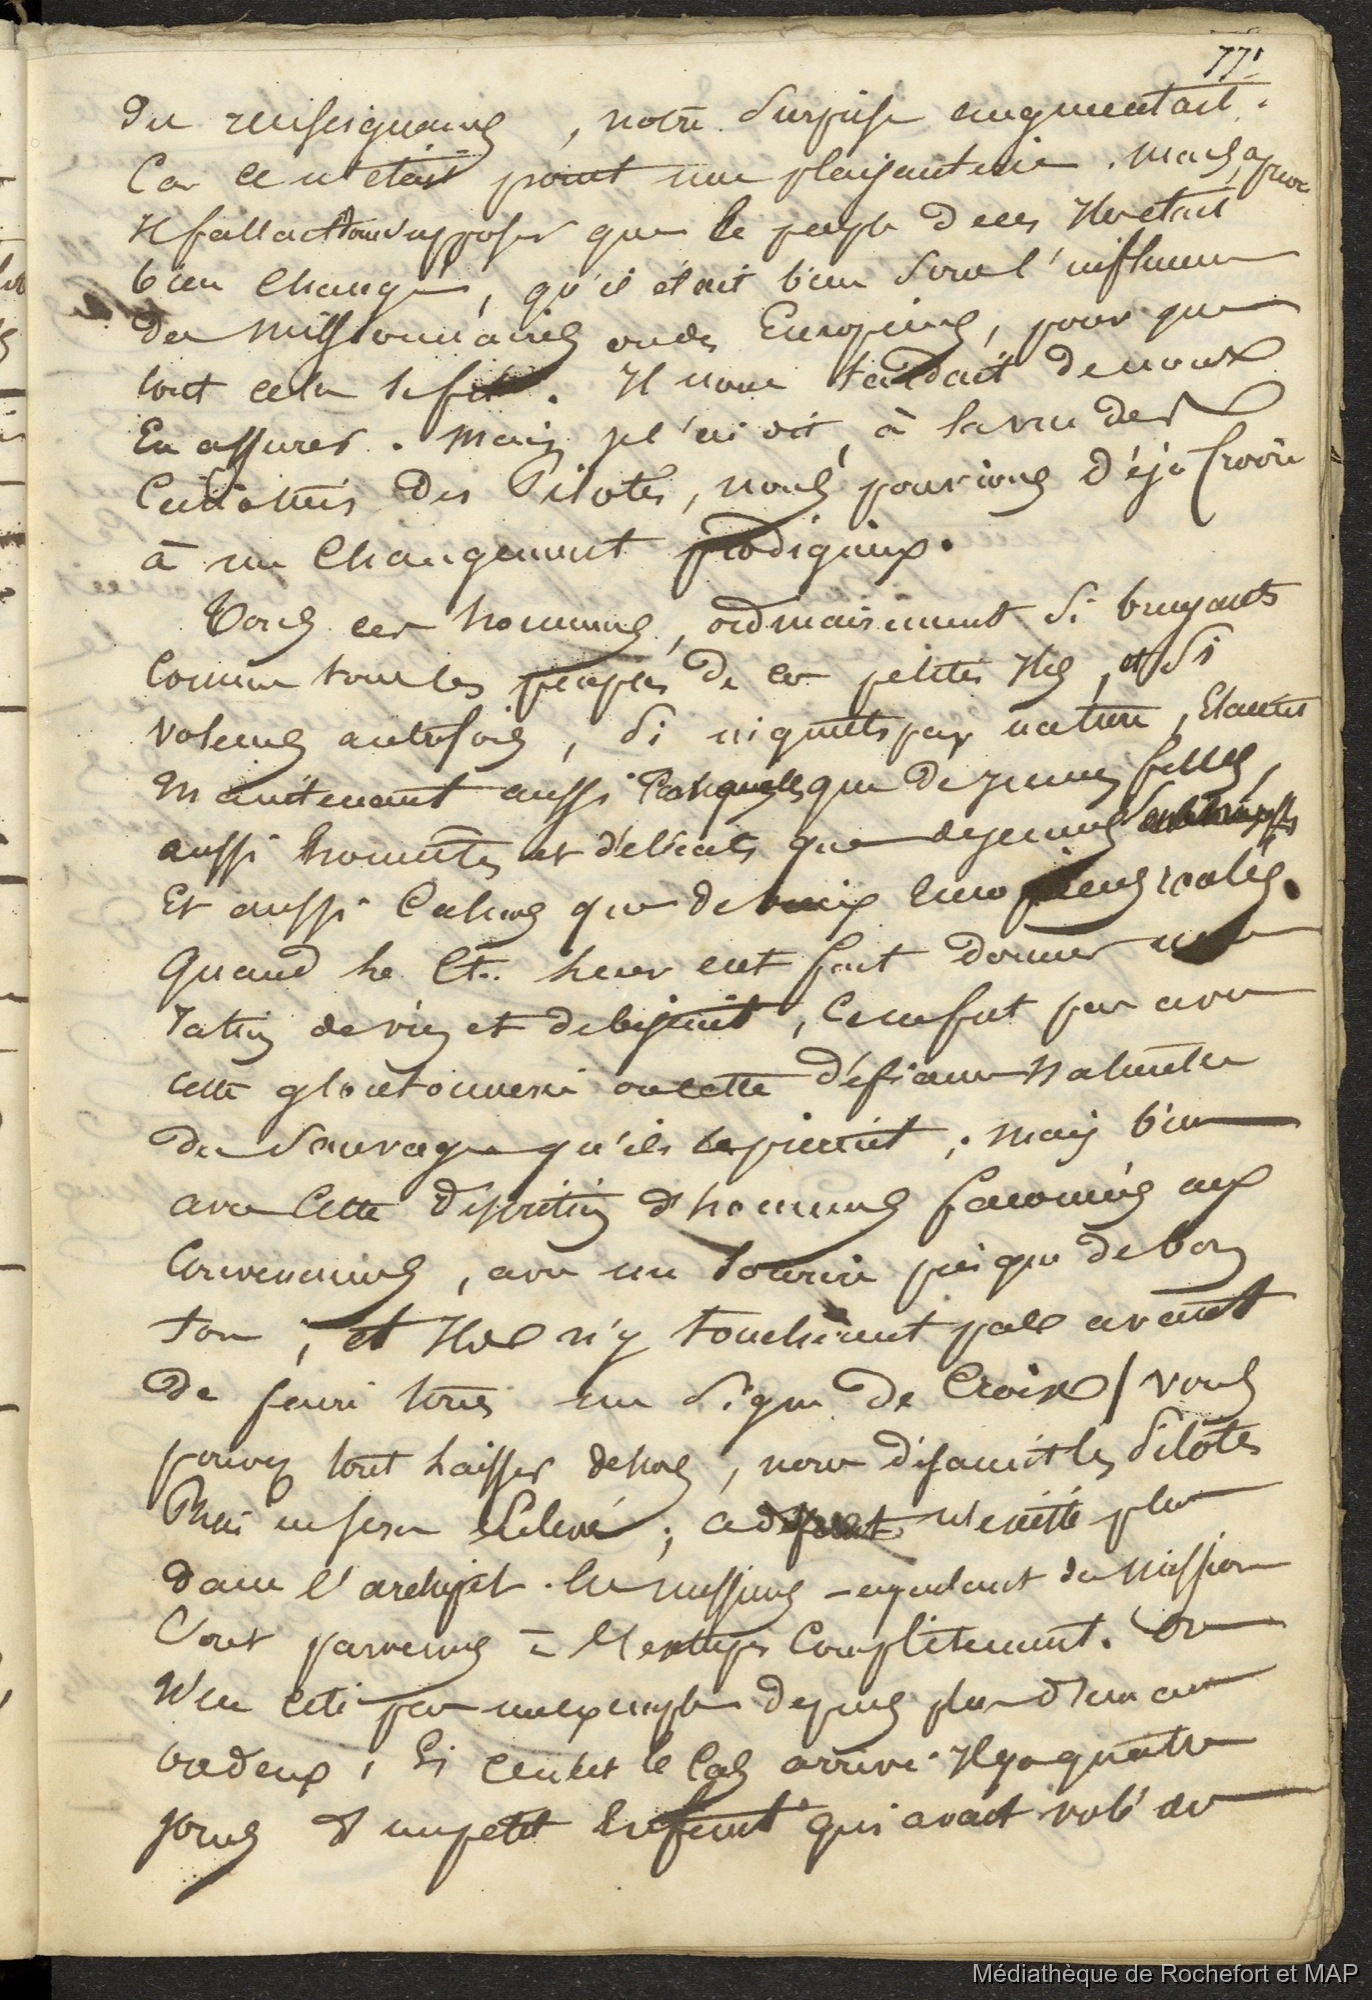 77.
du renseignems, notre surprise augmentait.
Car ce n'était point une plaisanterie. Mais, apres
Il fallait donc supposer que le peuple de ces Iles était
bien changé, qu'il était bien sous l'influence
des missionnaires ou des Européens, pour que
tout cela se fit. Il nous tardait de nous
En assurer. Mais je l'ai dit, à la vue des
des Pilotes, nous pouvions déja Croire
à un Changement prodigieux.
Tous ces hommes, ordinairement si bruyants
Comme tous les peuples de ces petites Iles, et si
voleurs autrefois, si inquiets par nature, Etaient
Maintenant aussi que de jeunes filles,
aussi honnetes et délicats que de jeunes
Et aussi Calmes que de vieux Européens
Quand le Ct. leur eut fait donner une
ration de vin et de biscuit, Ce ne fut pas avec
cette gloutonnerie ou cette défiance naturelle
du Sauvage qu'ils le prirent; mais bien
avec Cette discrétion d'hommes faconnés aux
Convenances, avec un sourire presque de bon
ton; et Ils n'y toucherent pas avant
de faire tous un signe de Croix / vous
pouvez tout laisser dehors, nous disaient les Pilotes
Rien ne sera enlevé; ce défaut n'existe plus
dans l'archipel. les missions ayudant de Mission
Sont parvenus à l'extirper Complètement. On
N'en cite pas un exemple depuis plus d'un an
ou deux, si ce n'est le Cas arrivé Il y a quatre
jours d'un petit Enfant qui avait volé de
Médiathèque de Rochefort et MAP